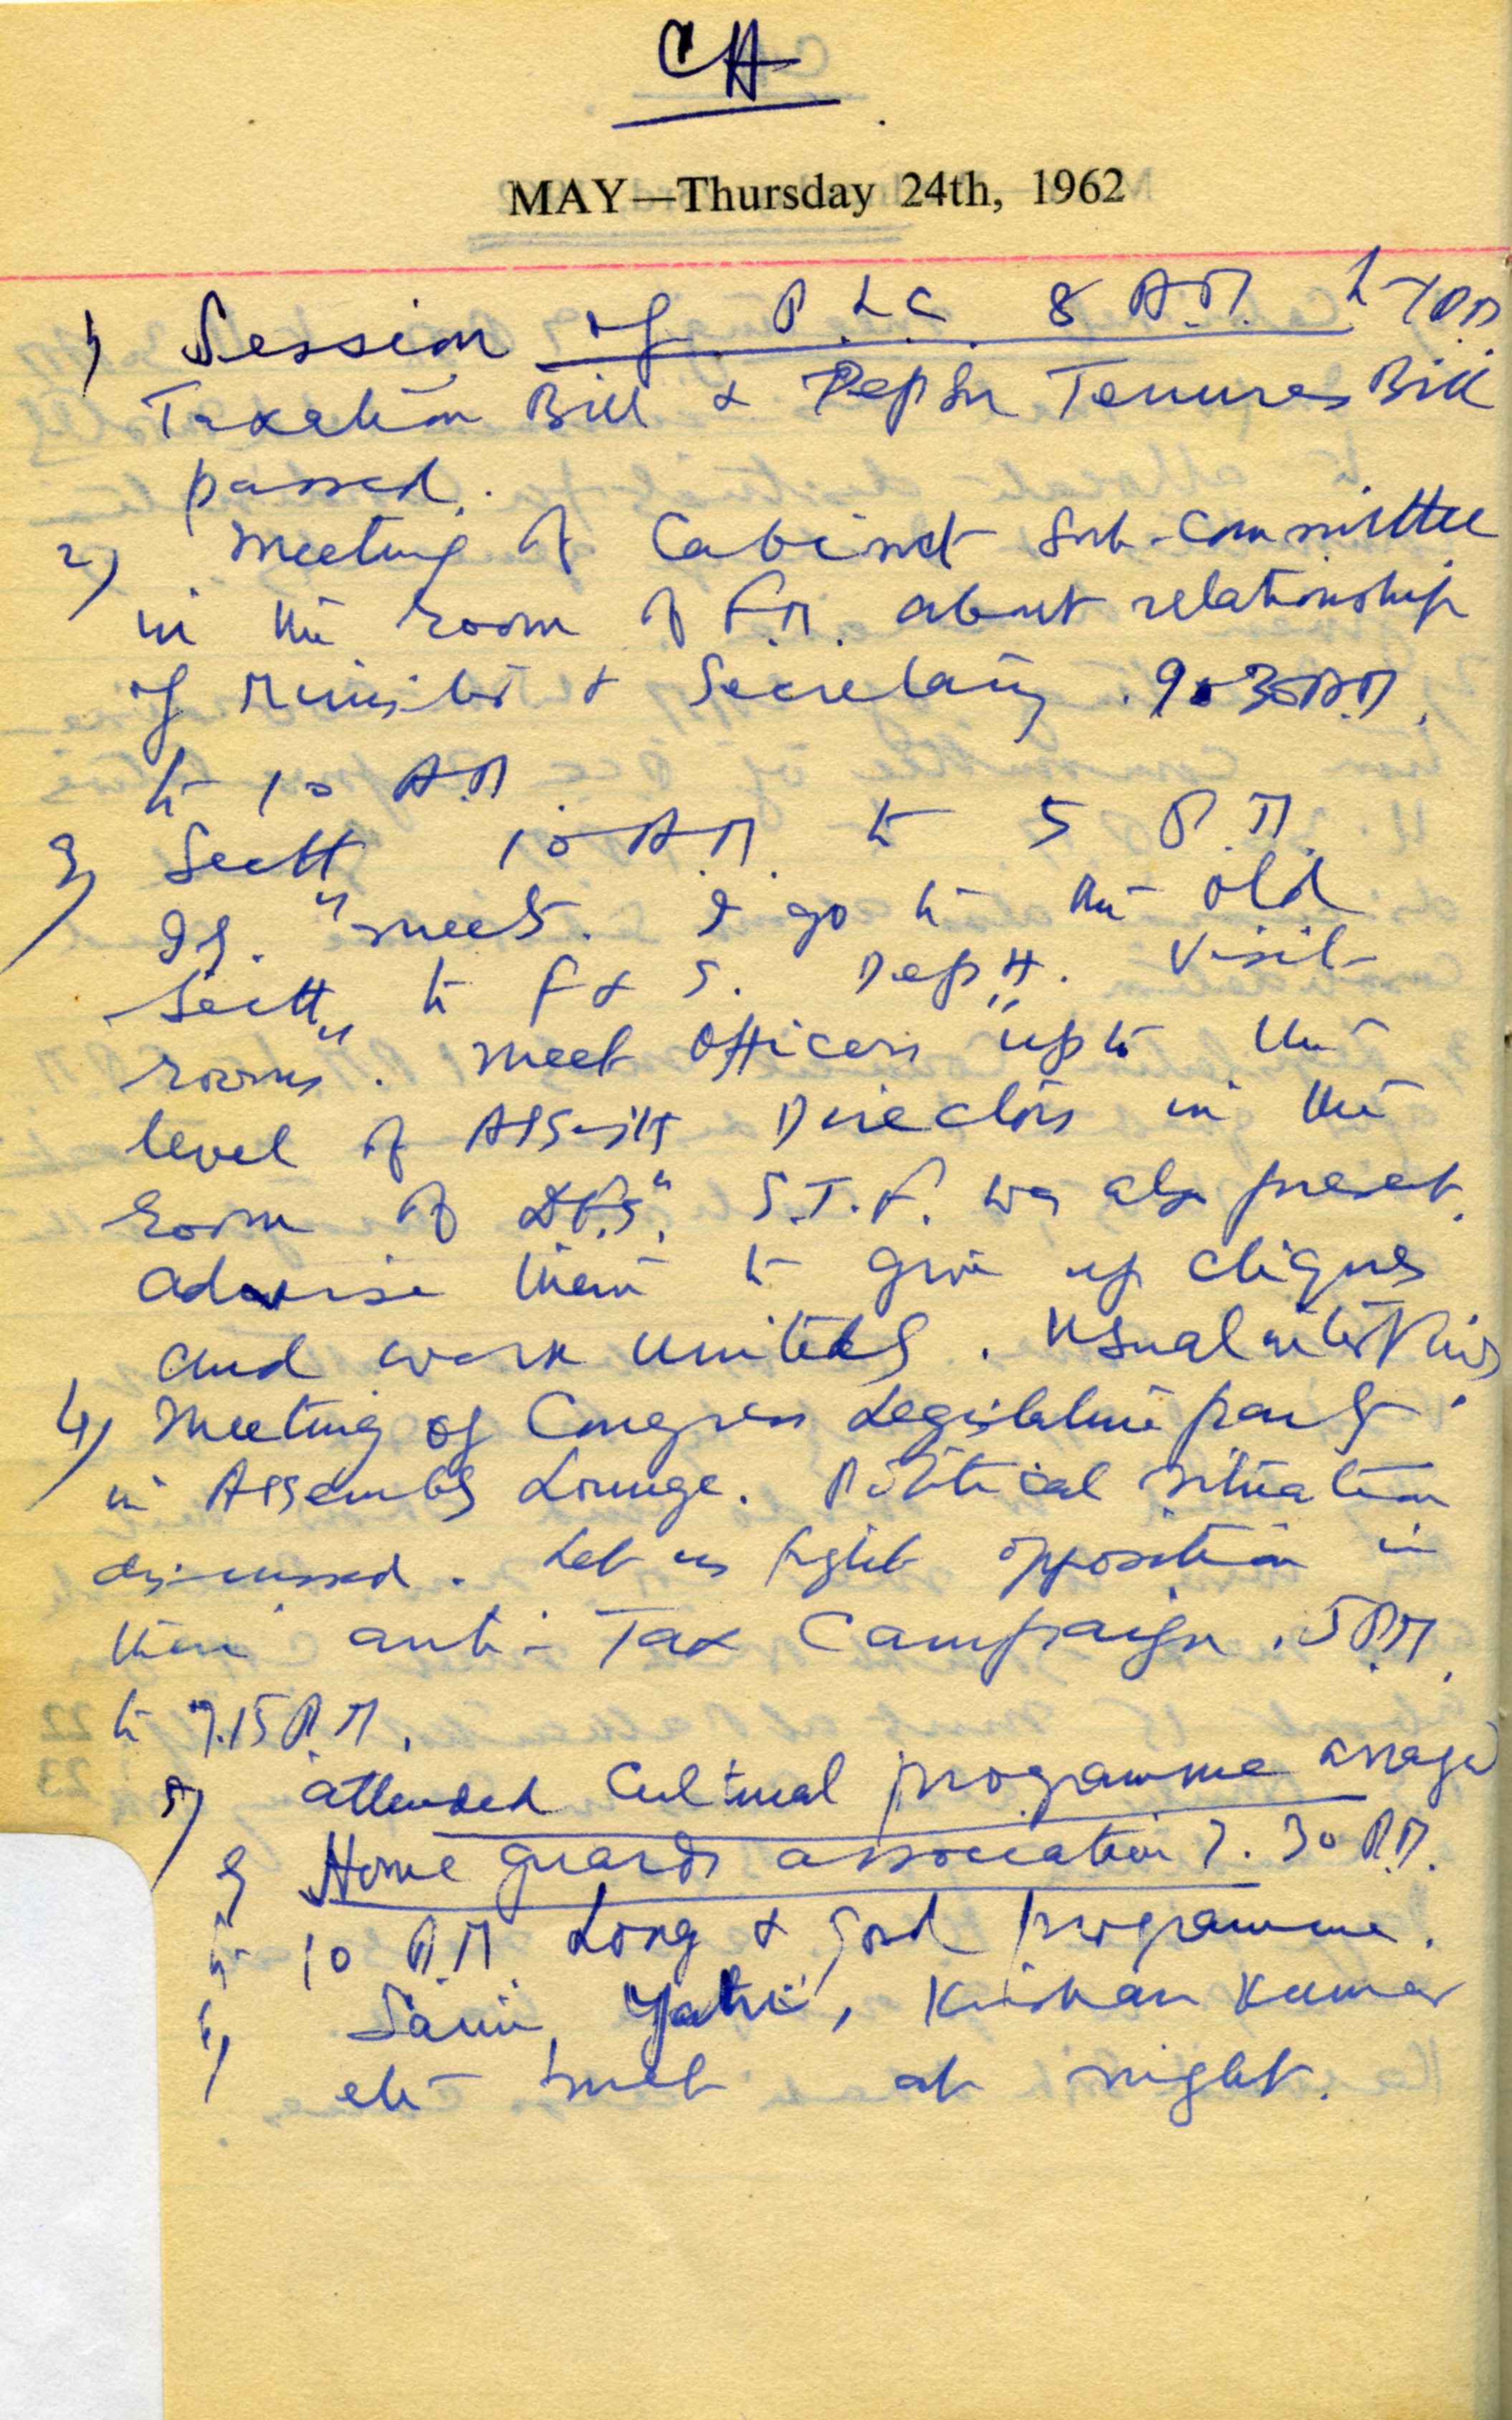 CH
MAY—Thursday 24th, 1962
1) Session of P.L.C. 8 A.M. to 1 P.M
Taxation Bill & Pepsu Tenures Bill
passed.
2) Meeting of Cabinet Sub-Committee
in the room of F.M. about relationship
of Minister & Secretary. 9.30 A.M.
to 10 A.M.
3) Sectt 10 A.M. to 5 P.M.
meets. I go to the old
Sectt to F & S. Deptt. Visit
rooms. Meet officers upto the
level of Assistt Directors in the
room of D.F.S. S.T.F. was also present.
Advise them to give up cliques
and work unitedly. Usual interviews
4) Meeting of Congress Legislature party
in Assembly Lounge. Political situation
discussed. Let us fight opposition in
their anti-Tax Campaign. 5 P.M.
to 7.15 P.M.
5) attended Cultural programme
of Home guards association 7.30 P.M.
to 10 P.M Long & good programme.
6) Saini, Yatri, Krishan Kumar
etc met at night.